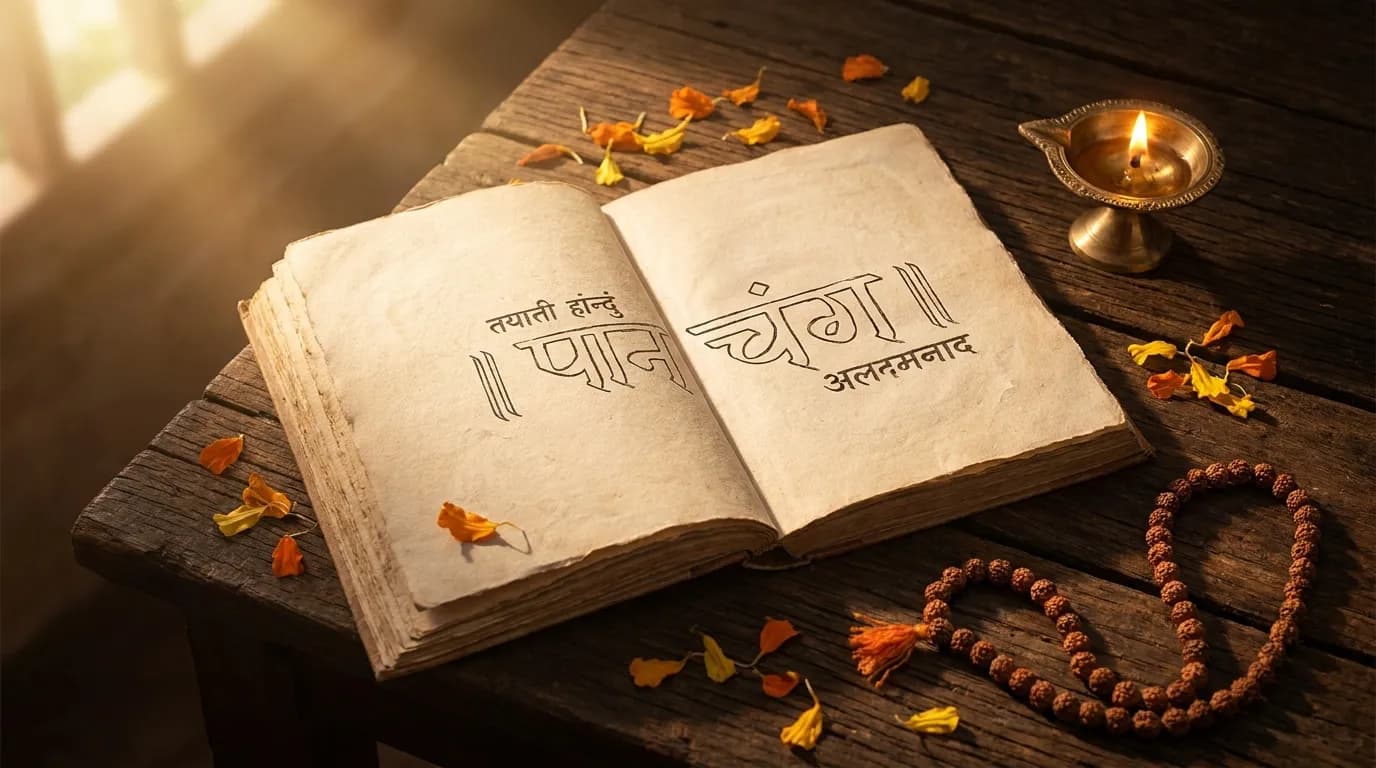 तयाती हांन्दुं
॥ पान चंग ॥
अलदमनाद